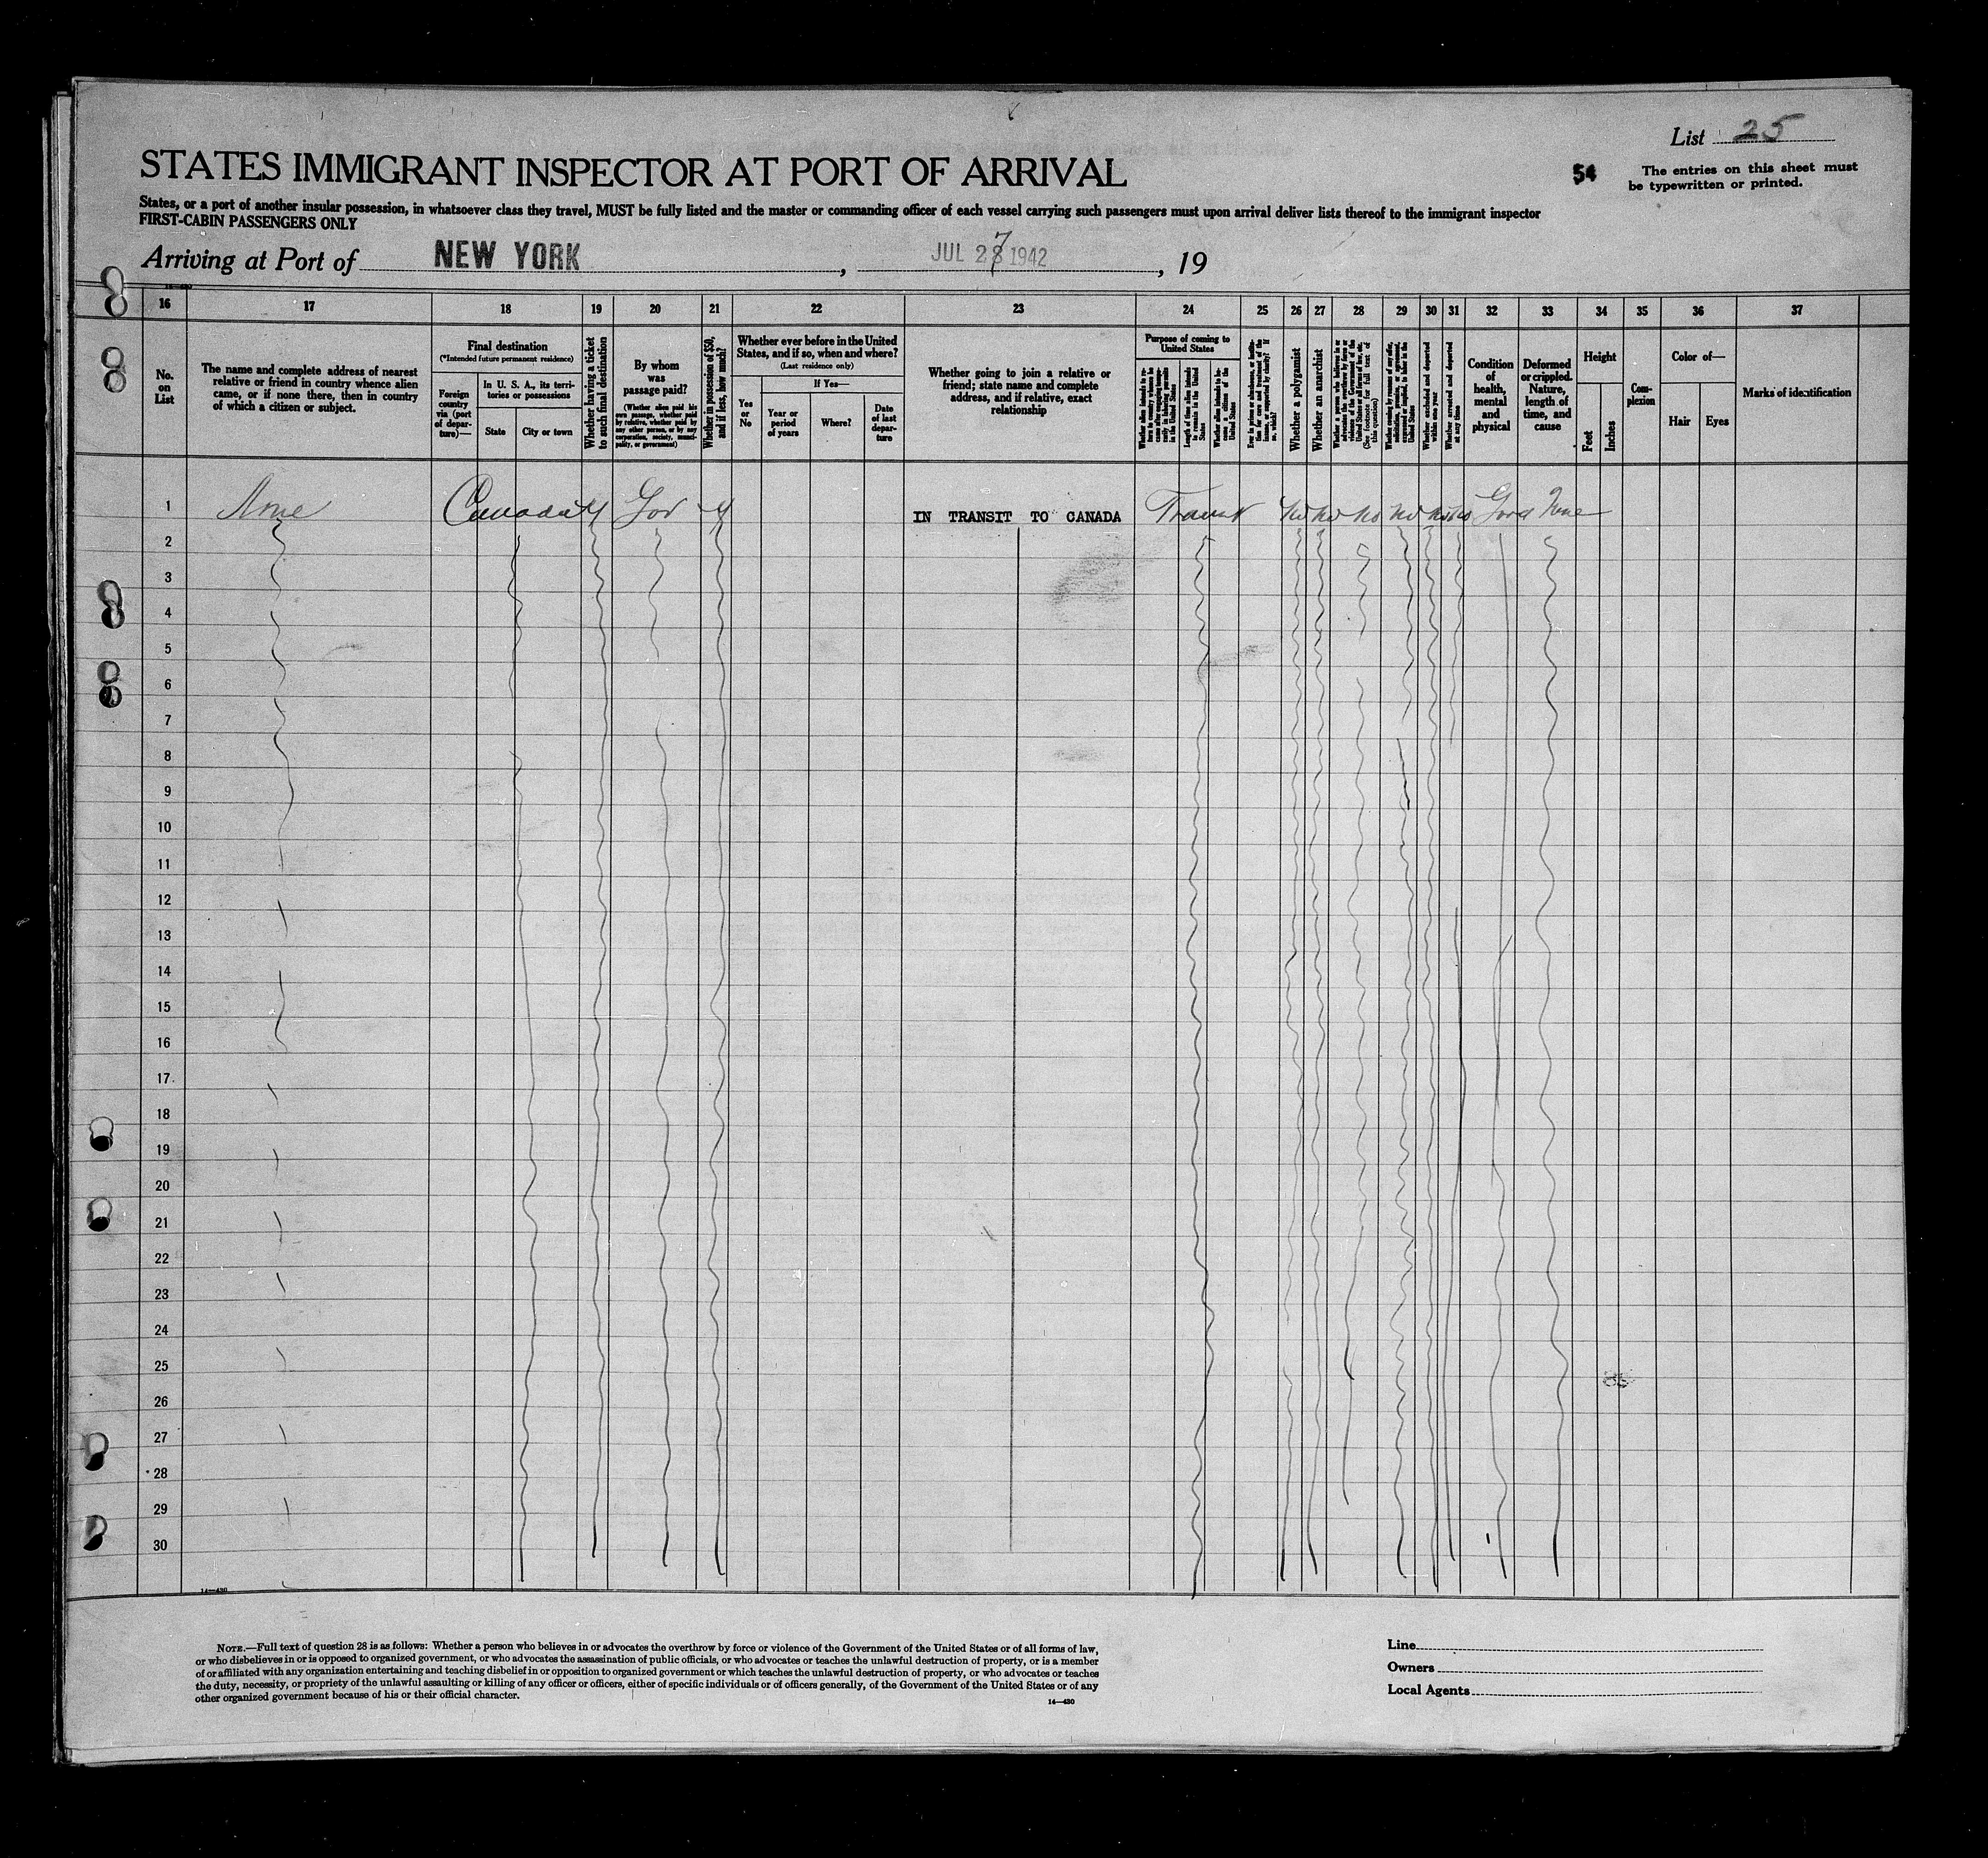 List 25
STATES IMMIGRANT INSPECTOR AT PORT OF ARRIVAL
54
The entries on this sheet must
be typewritten or printed.
States, or a port of another insular possession, in whatsoever class they travel, MUST be fully listed and the master or commanding officer of each vessel carrying such passengers must upon arrival deliver lists thereof to the immigrant inspector
FIRST-CABIN PASSENGERS ONLY
Arriving at Port of NEW YORK, JUL 27 1942, 19
16 17 18 19 20 21 22 23 24 25 26 27 28 29 30 31 32 33 34 35 36 37
No. on List
The name and complete address of nearest
relative or friend in country whence alien
came, or if none there, then in country
of which a citizen or subject.
Final destination
(*Intended future permanent residence)
Foreign country via (port of departure)—
In U. S. A., its territories or possessions
State
City or town
Whether having a ticket to such final destination
By whom was passage paid?
(Whether alien paid his own passage, whether paid by relative, whether paid by any other person, or by any corporation, society, municipality, or government)
Whether in possession of $50, and if less, how much?
Whether ever before in the United
States, and if so, when and where?
(Last residence only)
Yes or No
If Yes—
Year or period of years
Where?
Date of last departure
Whether going to join a relative or
friend; state name and complete
address, and if relative, exact
relationship
Purpose of coming to United States
Length of time alien intends to remain in the United States
Whether alien intends to become a citizen of the United States
Whether a polygamist
Whether an anarchist
(See footnote for full text of this question)
Whether excluded and deported within one year
Whether arrested and deported at any time
Condition of health, mental and physical
Deformed or crippled. Nature, length of time, and cause
Height
Feet
Inches
Complexion
Color of—
Hair
Eyes
Marks of identification
1 None Canada Y Gov Y IN TRANSIT TO CANADA Transit No No No No No No Good None
2
3
4
5
6
7
8
9
10
11
12
13
14
15
16
17
18
19
20
21
22
23
24
25
26
27
28
29
30
14—430
NOTE.—Full text of question 28 is as follows: Whether a person who believes in or advocates the overthrow by force or violence of the Government of the United States or of all forms of law,
or who disbelieves in or is opposed to organized government, or who advocates the assassination of public officials, or who advocates or teaches the unlawful destruction of property, or is a member
of or affiliated with any organization entertaining and teaching disbelief in or opposition to organized government or which teaches the unlawful destruction of property, or who advocates or teaches
the duty, necessity, or propriety of the unlawful assaulting or killing of any officer or officers, either of specific individuals or of officers generally, of the Government of the United States or of any
other organized government because of his or their official character.
14—430
Line
Owners
Local Agents